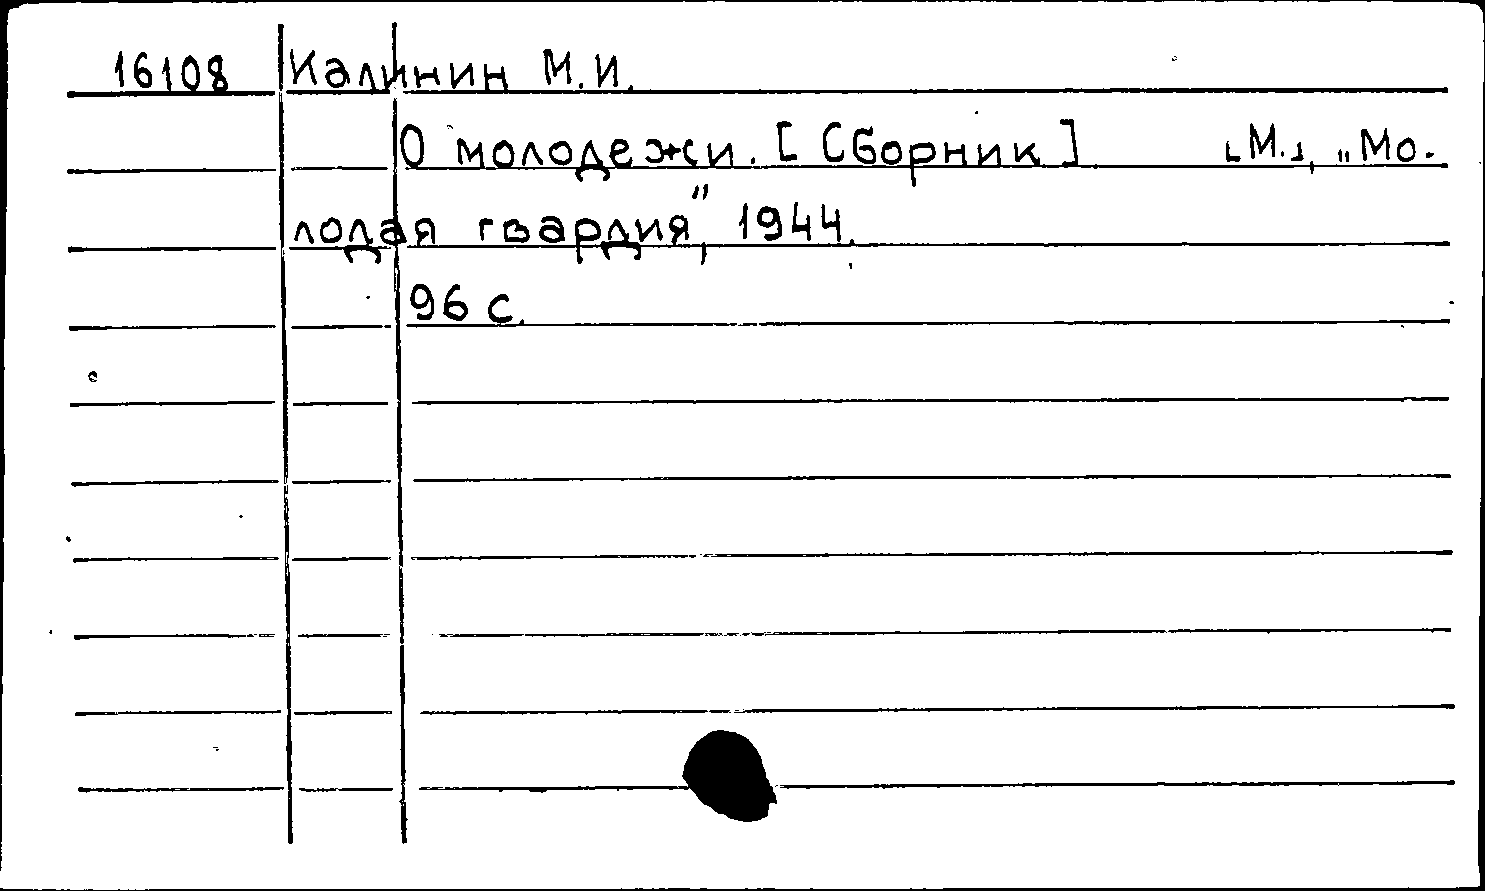 16108 Калинин М.И.
О молодежи. [Сборник] [М.], „Мо-
лодая гвардия", 1944.
96 с.